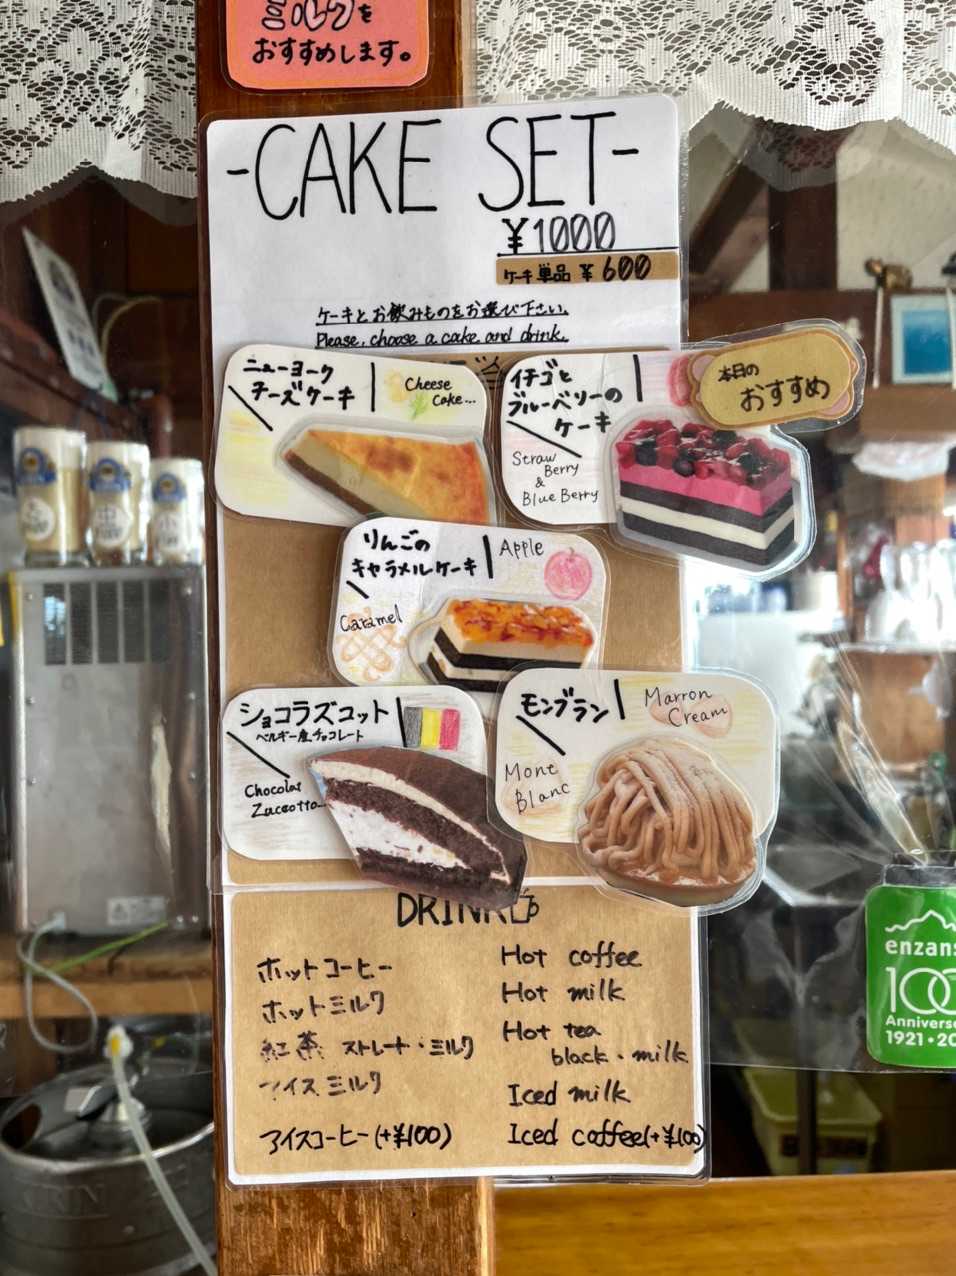 ミルクを
おすすめします。
-CAKE SET-
¥1000
ケーキ単品 ¥600
ケーキとお飲みものをお選び下さい。
Please choose a cake and drink.
ニューヨーク
チーズケーキ
Cheese
Cake...
イチゴと
ブルーベリーの
ケーキ
Straw
Berry
&
Blue Berry
本日の
おすすめ
りんごの
キャラメルケーキ
Apple
Caramel
ショコラズコット
ベルギー産チョコレート
Chocolat
Zuccotto...
モンブラン
Marron
Cream
Mont
Blanc
DRINK
ホットコーヒー
Hot coffee
ホットミルク
Hot milk
紅茶 ストレート・ミルク
Hot tea
black・milk
アイスミルク
Iced milk
アイスコーヒー(+¥100)
Iced coffee(+¥100)
enzans
100
Annivers
1921・20